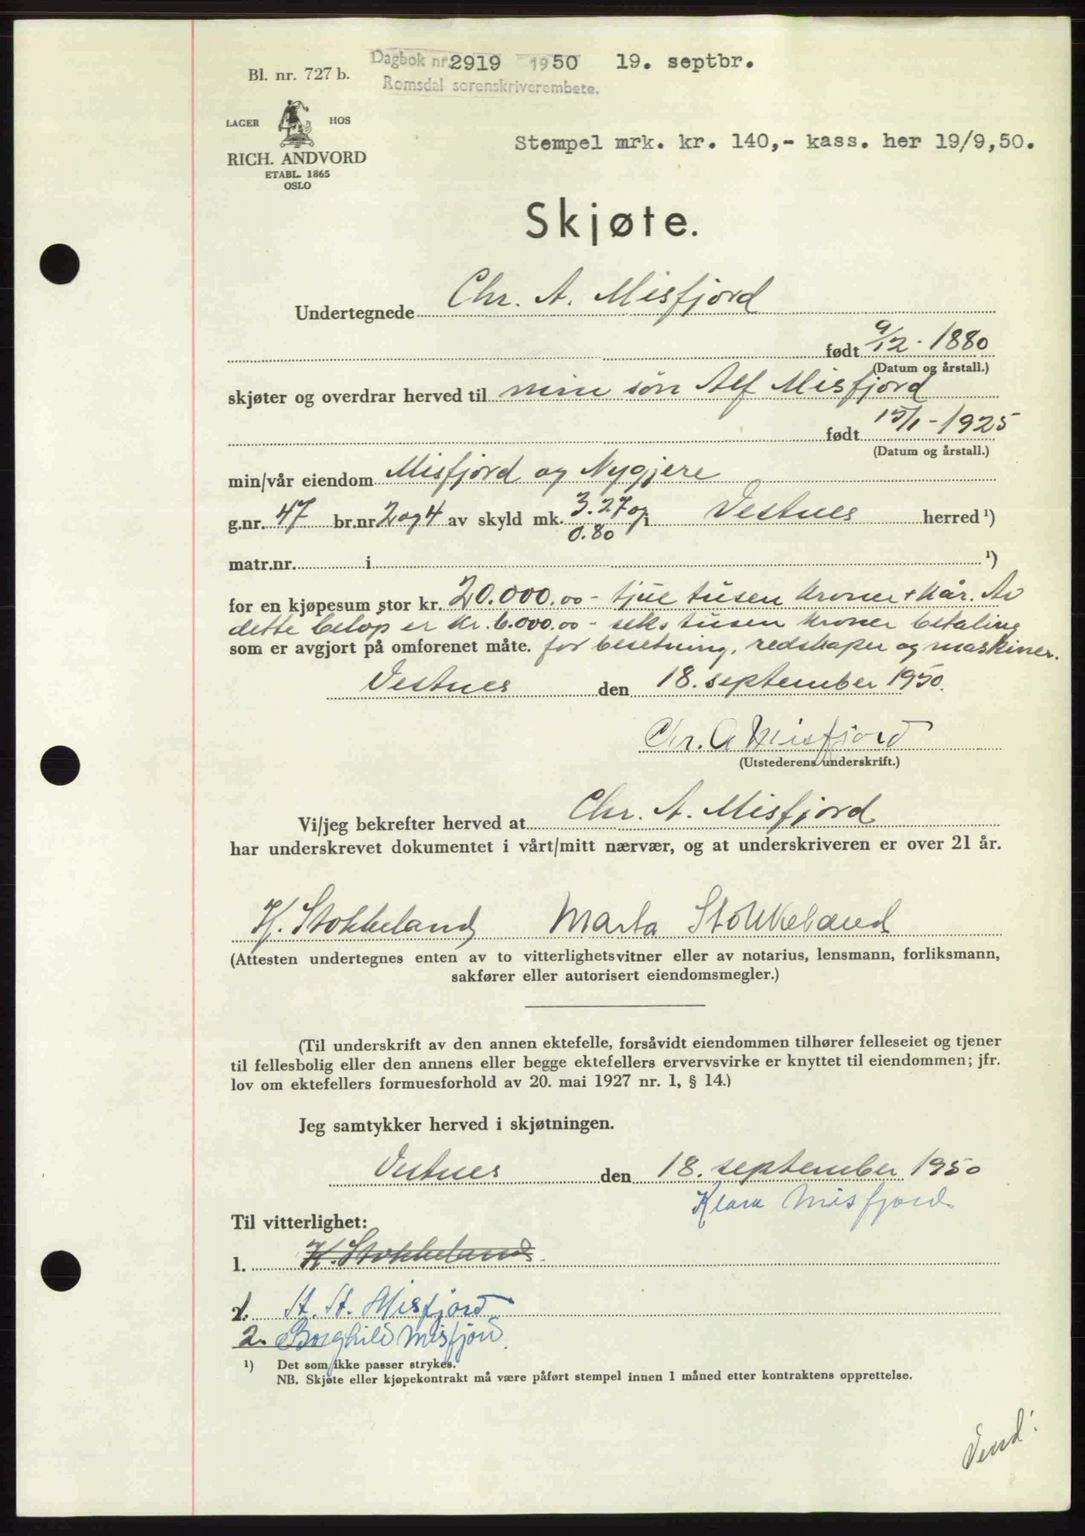 Dagbok nr. 2919 1950 19. septbr.
Romsdal sorenskriverembete.
Bl. nr. 727 b.
LAGER HOS
RICH. ANDVORD
ETABL. 1865
OSLO
Stempel mrk. kr. 140,- kass. her 19/9,50.
Skjøte.
Undertegnede Chr. A. Misfjord
født 9/12-1880
(Datum og årstall.)
skjøter og overdrar herved til min søn Alf Misfjord
født 15/1-1925
(Datum og årstall.)
min/vår eiendom Misfjord og Nygjere
g.nr. 47 br.nr. 2 og 4 av skyld mk. 3.27 og i Vestnes herred ¹)
0.80
matr.nr. i ¹)
for en kjøpesum stor kr. 20.000.00 - tjue tusen kroner + kår. Av
dette beløp er kr. 6.000.00 - seks tusen kroner betaling
som er avgjort på omforenet måte. for besetning, redskaper og maskiner.
Vestnes den 18. september 1950.
Chr. A Misfjord
(Utstederens underskrift.)
Vi/jeg bekrefter herved at Chr. A. Misfjord
har underskrevet dokumentet i vårt/mitt nærvær, og at underskriveren er over 21 år.
K. Stokkeland Marta Stokkeland
(Attesten undertegnes enten av to vitterlighetsvitner eller av notarius, lensmann, forliksmann,
sakfører eller autorisert eiendomsmegler.)
(Til underskrift av den annen ektefelle, forsåvidt eiendommen tilhører felleseiet og tjener
til fellesbolig eller den annens eller begge ektefellers ervervsvirke er knyttet til eiendommen; jfr.
lov om ektefellers formuesforhold av 20. mai 1927 nr. 1, § 14.)
Jeg samtykker herved i skjøtningen.
Vestnes den 18. september 1950
Klara Misfjord
Til vitterlighet:
1. K. Stokkeland
1. St. St. Misfjord
2. Borghild Misfjord.
¹) Det som ikke passer strykes.
NB. Skjøte eller kjøpekontrakt må være påført stempel innen 1 måned etter kontraktens opprettelse.
Vend!